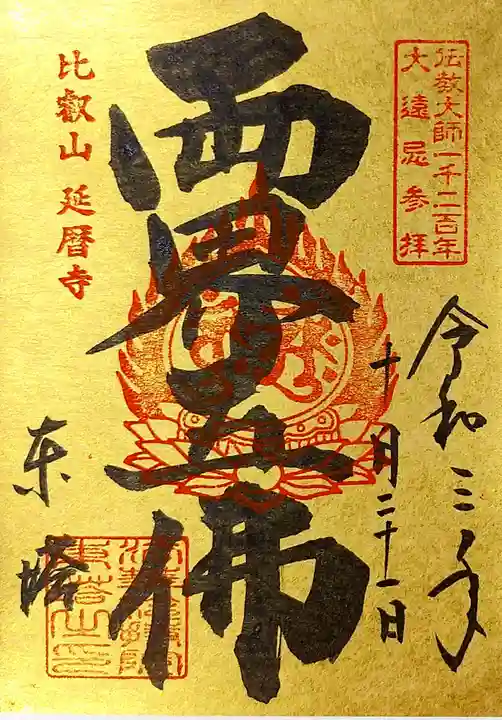 伝教大師一千二百年
大遠忌参拝
令和三年
十月二十一日
両界五佛
比叡山 延暦寺
東塔